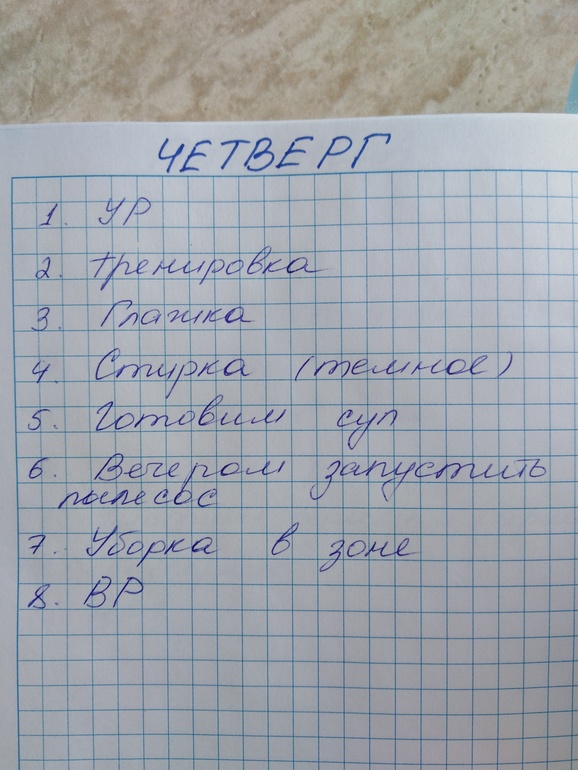 ЧЕТВЕРГ
1. УР
2. тренировка
3. Глажка
4. Стирка (темное)
5. Готовим суп
6. Вечером запустить
пылесос
7. Уборка в зоне
8. ВР